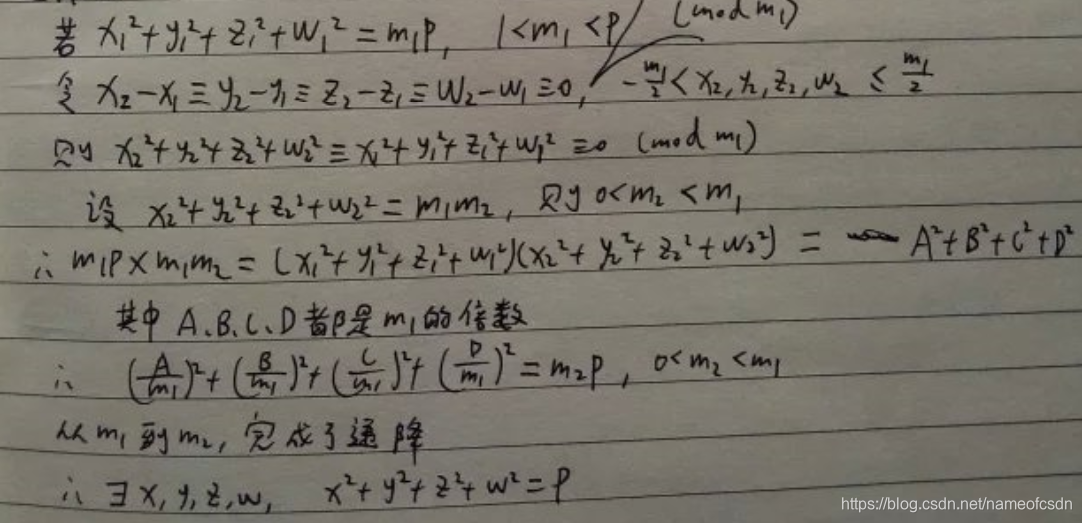 若 x₁²+y₁²+z₁²+w₁²=m₁p, 1<m₁<p
(mod m₁)
令 x₂-x₁≡y₂-y₁≡z₂-z₁≡w₂-w₁≡0, -m₁/2<x₂,y₂,z₂,w₂≤m₁/2
则 x₂²+y₂²+z₂²+w₂²≡x₁²+y₁²+z₁²+w₁²≡0 (mod m₁)
设 x₂²+y₂²+z₂²+w₂²=m₁m₂, 则 0<m₂<m₁
∴ m₁p×m₁m₂=(x₁²+y₁²+z₁²+w₁²)(x₂²+y₂²+z₂²+w₂²)=A²+B²+C²+D²
其中 A、B、C、D都是m₁的倍数
∴ (A/m₁)²+(B/m₁)²+(C/m₁)²+(D/m₁)²=m₂p, 0<m₂<m₁
从m₁到m₂, 完成了递降
∴ ∃x,y,z,w, x²+y²+z²+w²=p
https://blog.csdn.net/nameofcsdn